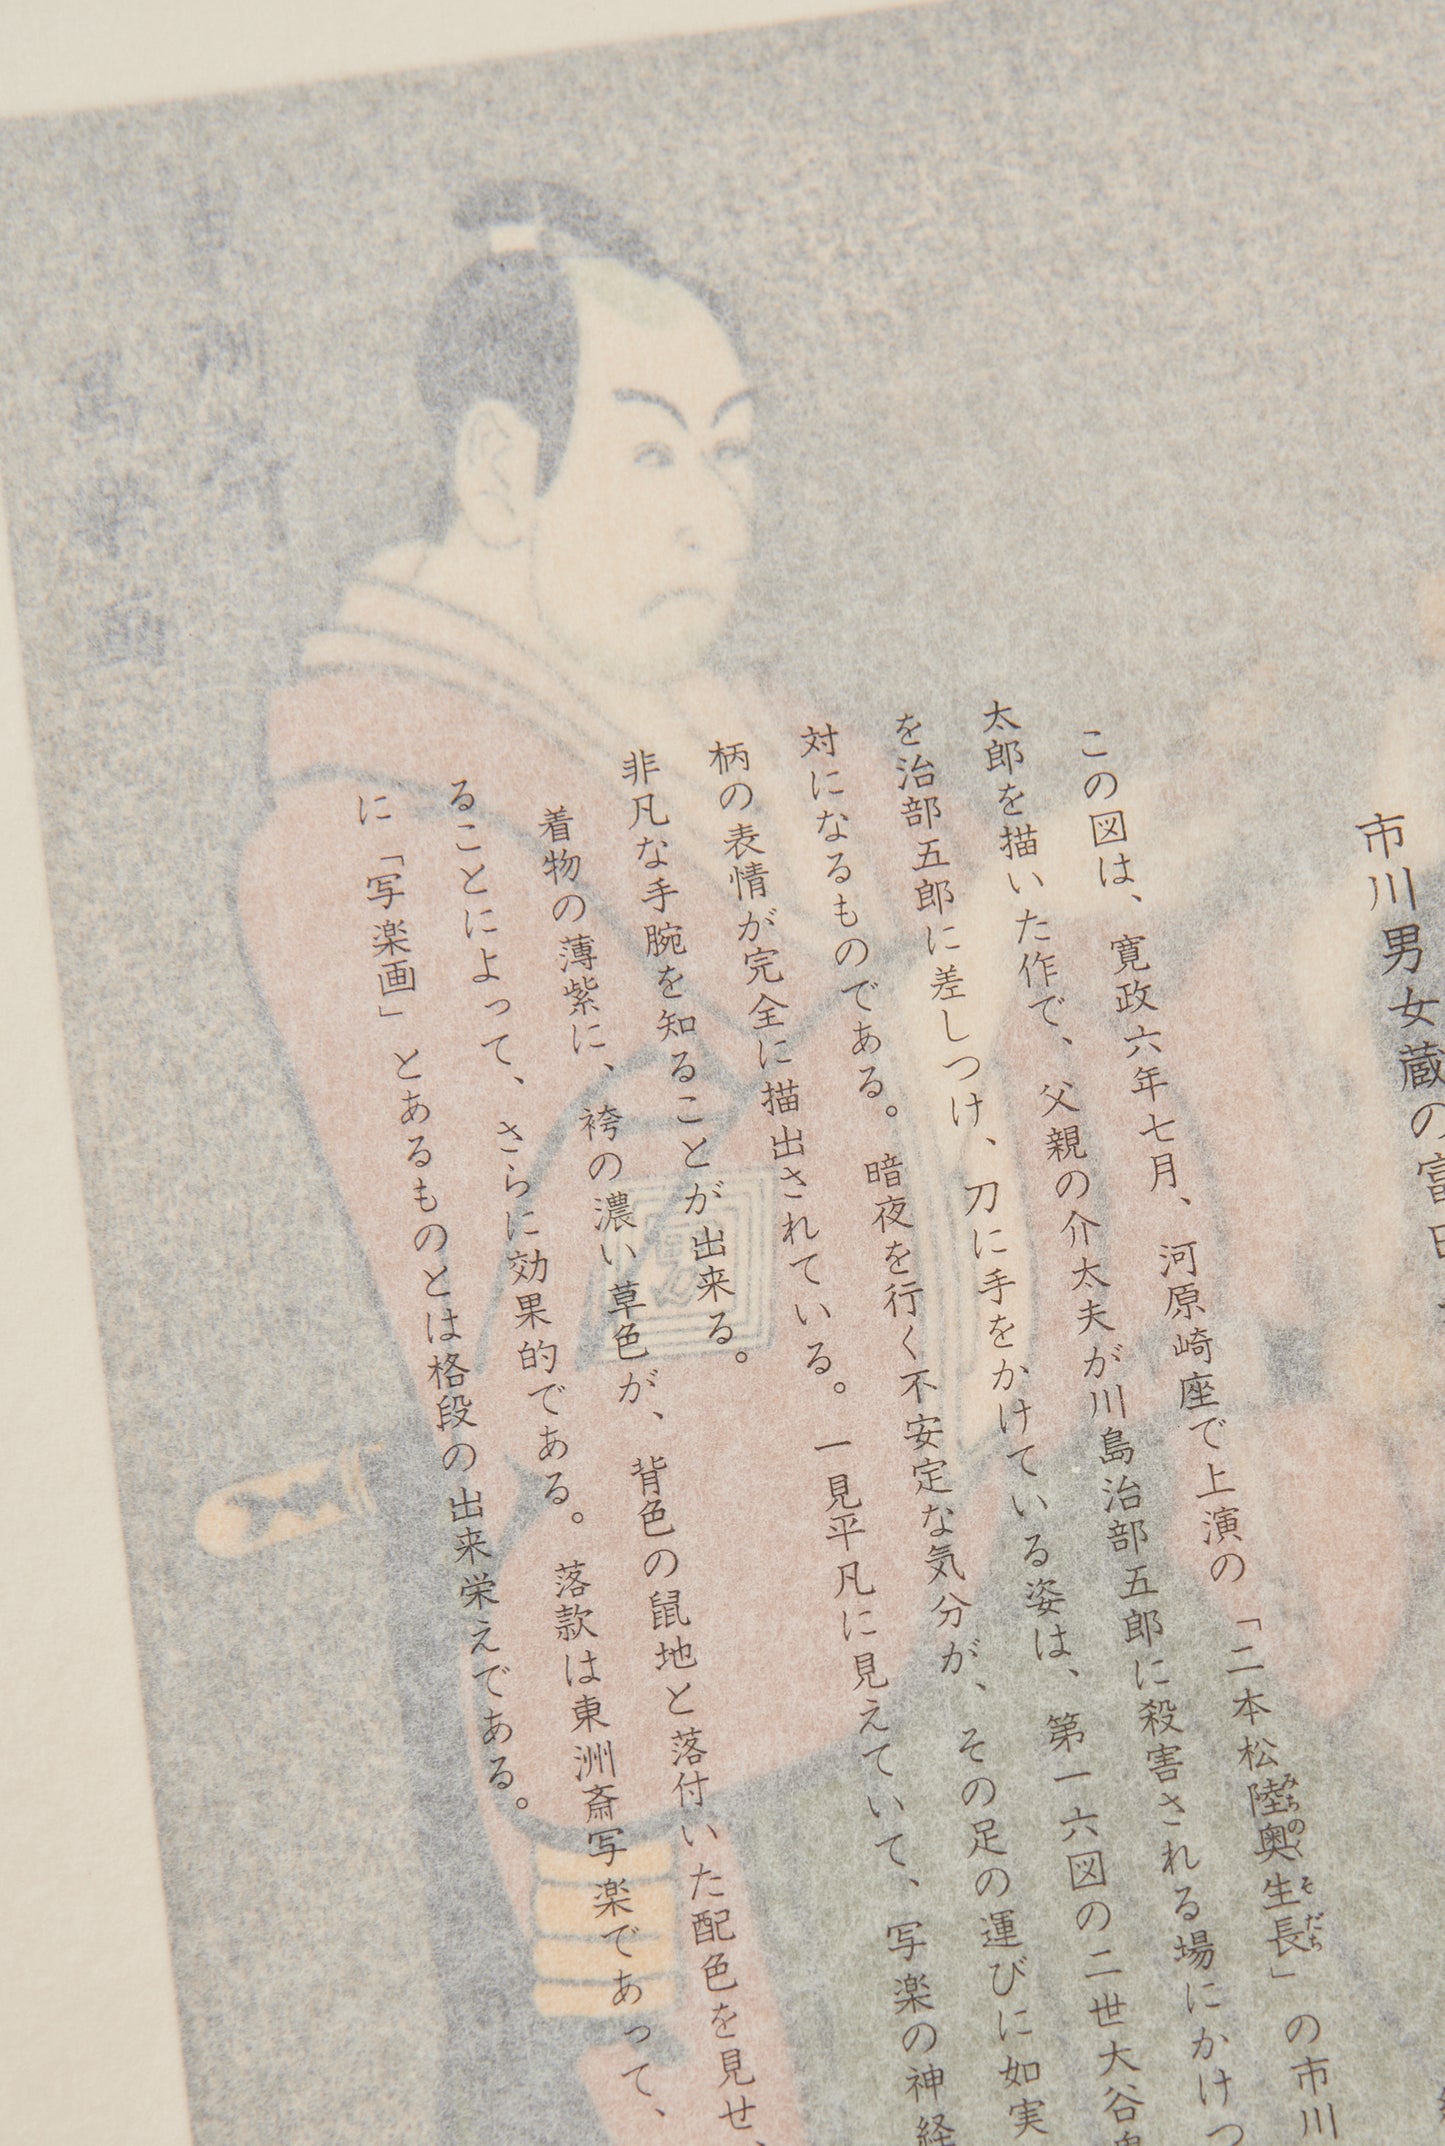 市川男女蔵の富田
この図は、寛政六年七月、河原崎座で上演の「二本松陸奥生長」の市川
みちのく そだち
太郎を描いた作で、父親の介太夫が川島治部五郎に殺害される場にかけつ
を治部五郎に差しつけ、刀に手をかけている姿は、第一六図の二世大谷
対になるものである。暗夜を行く不安定な気分が、その足の運びに如実
柄の表情が完全に描出されている。一見平凡に見えていて、写楽の神経
非凡な手腕を知ることが出来る。
着物の薄紫に、袴の濃い草色が、背色の鼠地と落付いた配色を見せ、
ることによって、さらに効果的である。落款は東洲斎写楽であって、
に「写楽画」とあるものとは格段の出来栄えである。